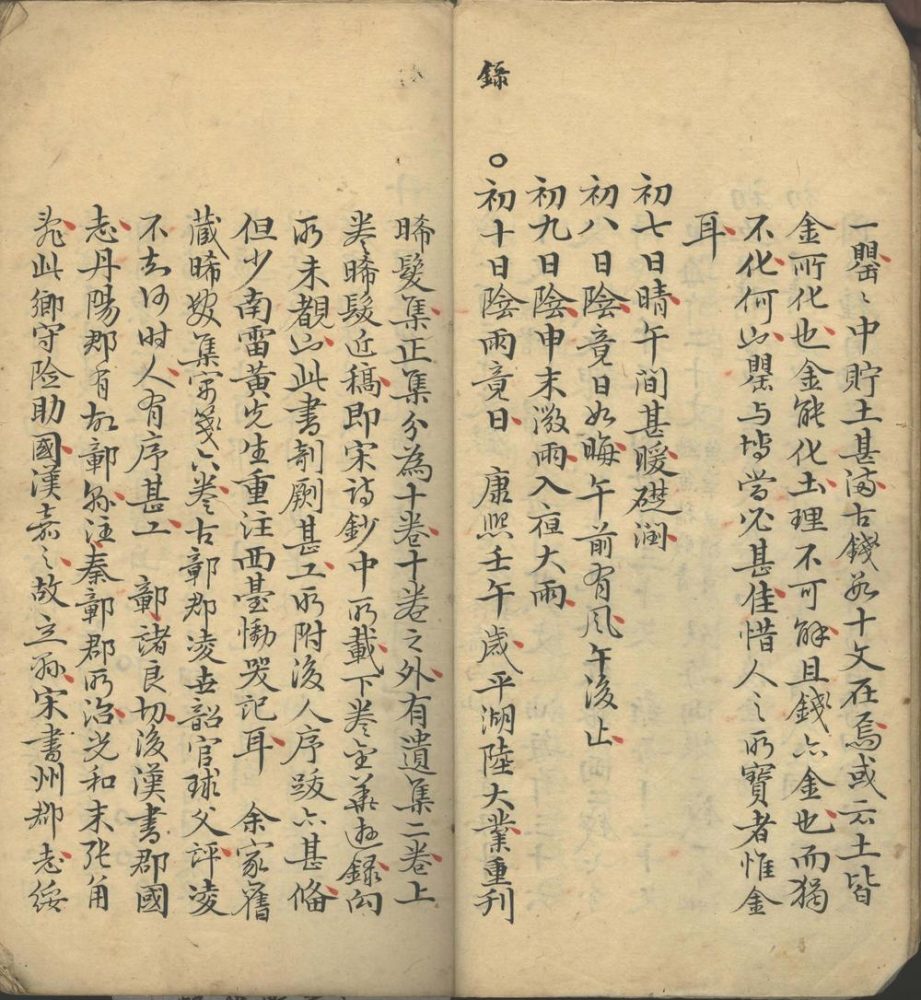 一罌〻中貯土甚滿古錢數十文在焉或云土皆
金所化也金能化土理不可解且錢亦金也而猶
不化何也罌与塼當必甚佳惜人之所寶者惟金
耳
初七日晴午間甚暖礎潤
初八日陰竟日如晦午前有風午後止
初九日陰申末微雨入夜大雨
錄
○初十日陰雨竟日 康熙壬午歲平湖陸大業重刊
晞髮集正集分為十卷十卷之外有遺集二卷上
卷晞髮近稿即宋诗鈔中所載下卷金華遊錄向
所未覩也此書剞劂甚工所附後人序跋亦甚俻
但少南雷黃先生重注西臺慟哭記耳 余家舊
藏晞髮集寀箋六卷古鄣郡凌世韶官球父評凌
不知何时人有序甚工 鄣諸良切後漢書郡國
志丹陽郡有故鄣縣注秦鄣郡所治光和末张角
亂此鄉守险助國漢嘉之故立縣宋書州郡志綏